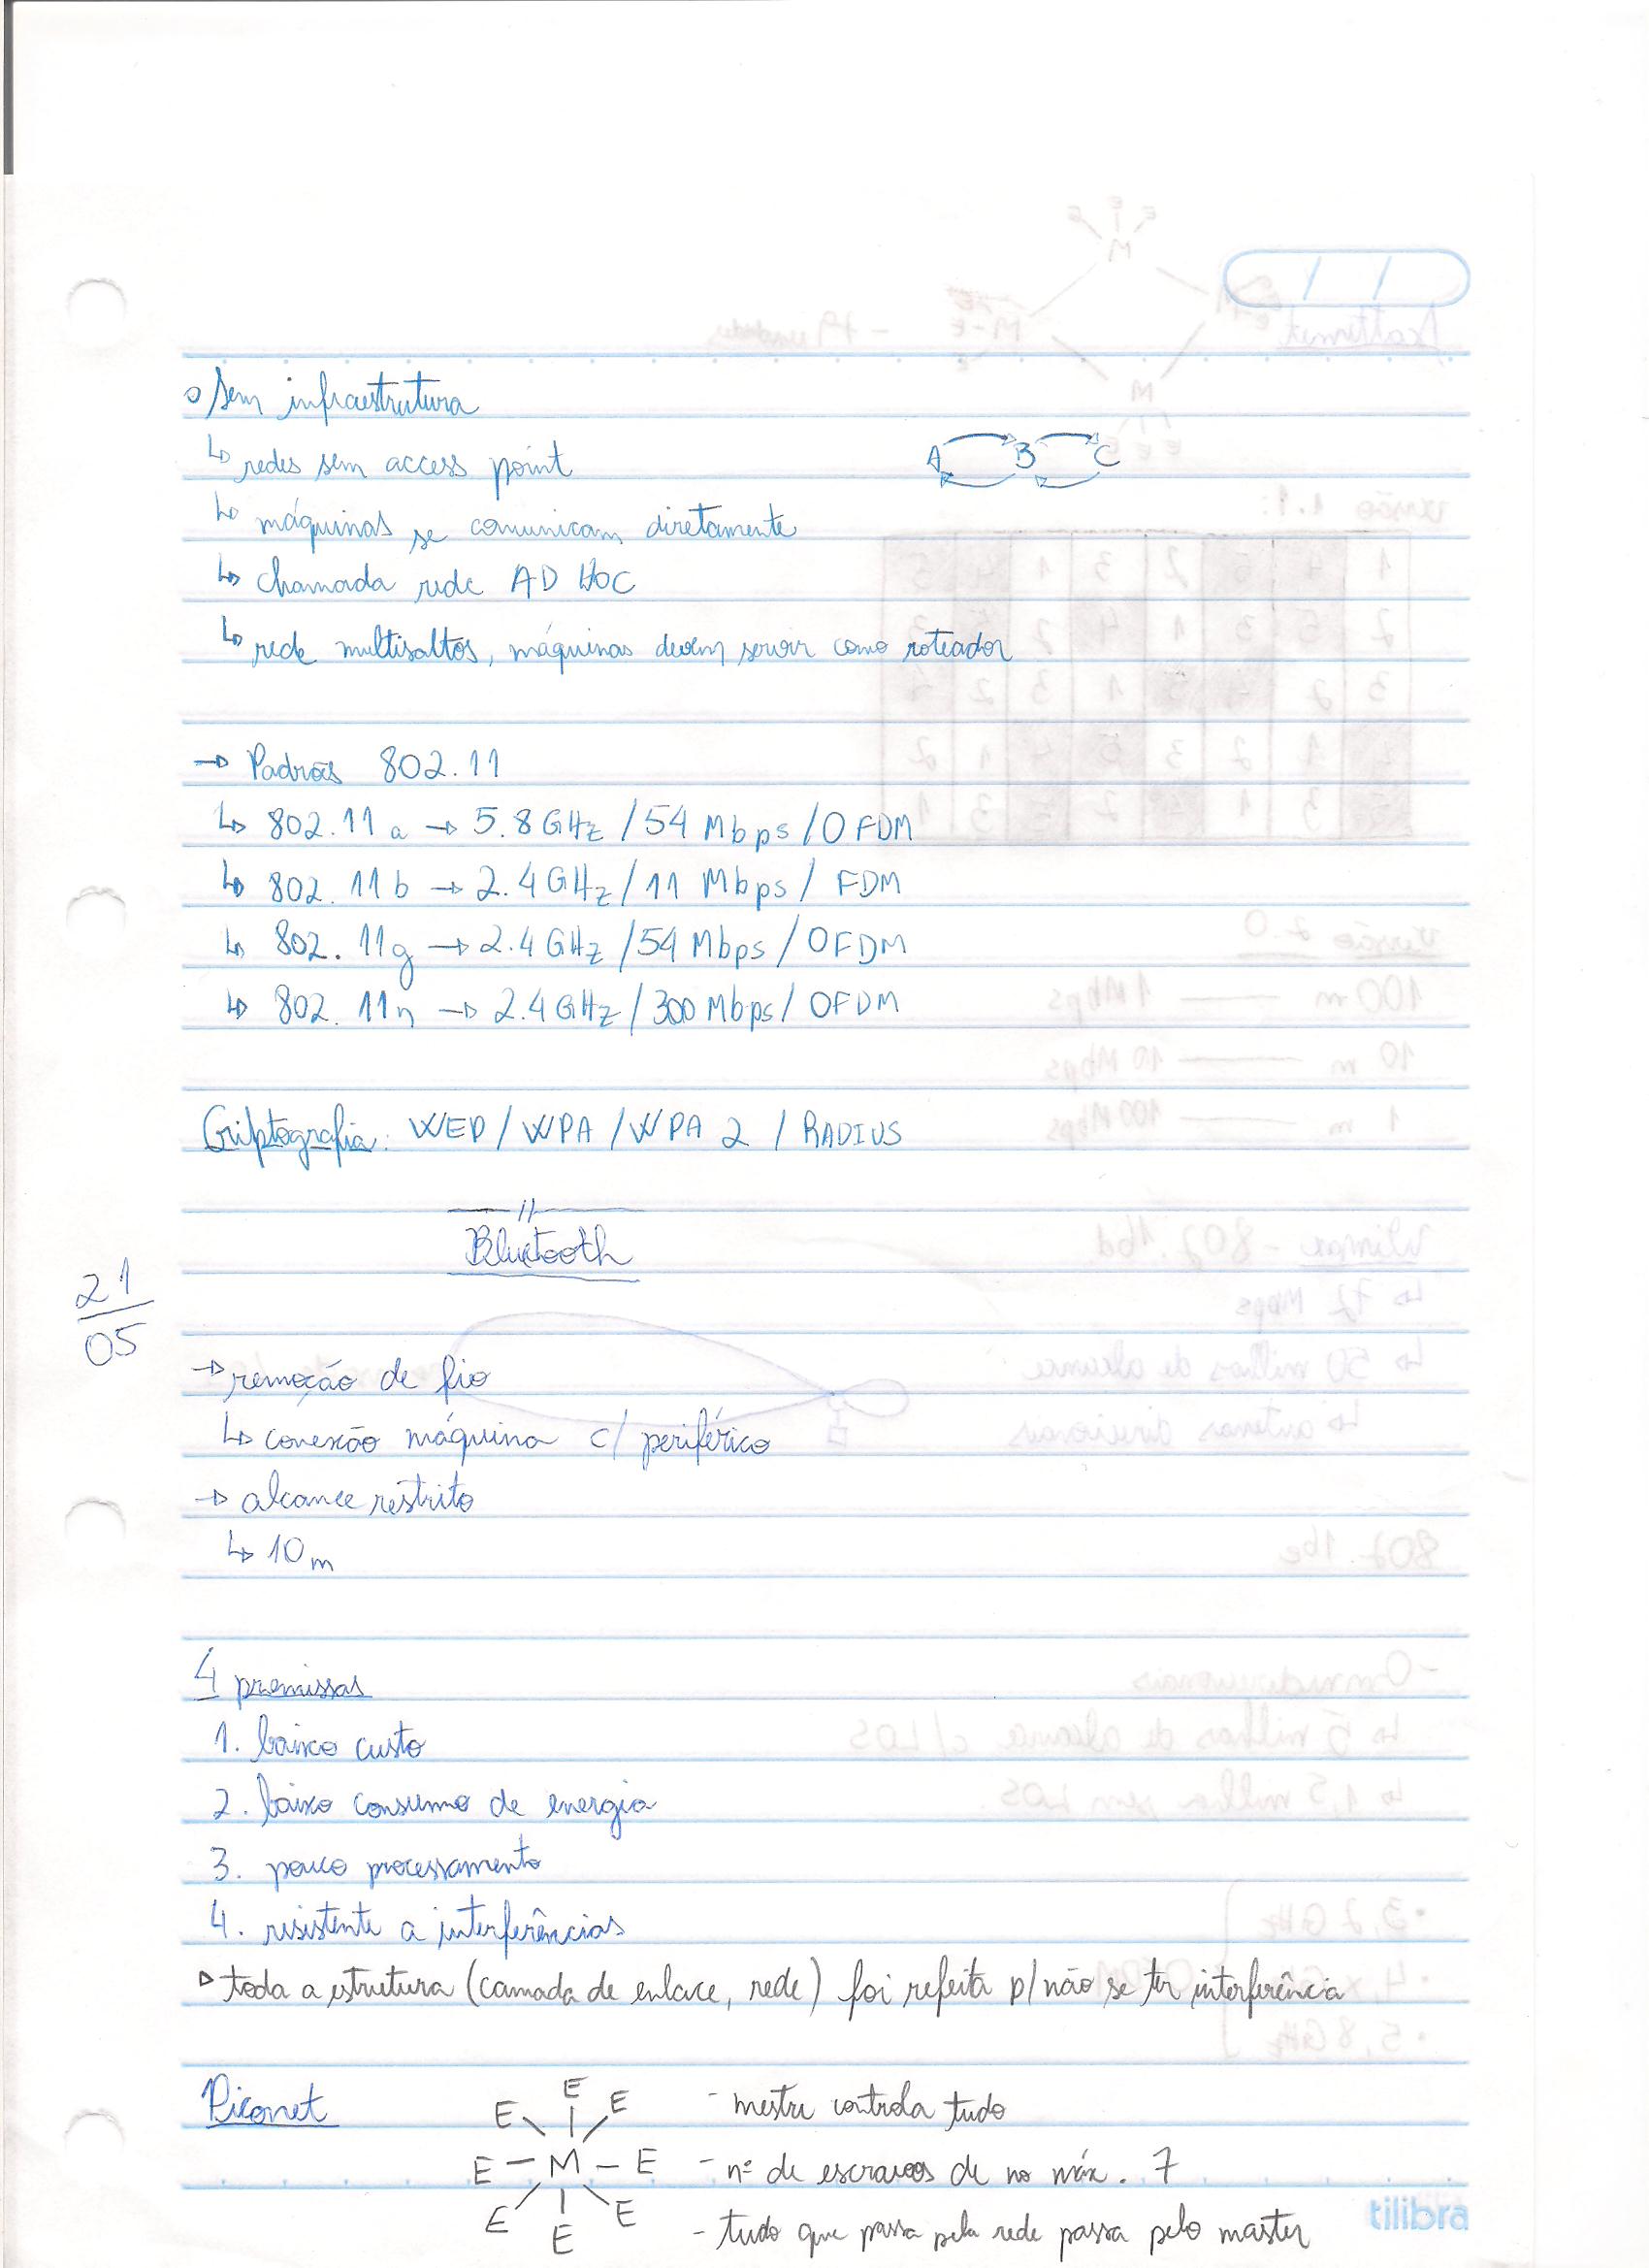 o Sem infraestrutura
↳ redes sem access point
A B C
↳ máquinas se comunicam diretamente
↳ chamada rede AD HOC
↳ rede multisaltos, máquinas devem servir como roteador
→ Padrões 802.11
↳ 802.11a → 5.8 GHz / 54 Mbps / OFDM
↳ 802.11b → 2.4 GHz / 11 Mbps / FDM
↳ 802.11g → 2.4 GHz / 54 Mbps / OFDM
↳ 802.11n → 2.4 GHz / 300 Mbps / OFDM
Criptografia: WEP / WPA / WPA 2 / RADIUS
Bluetooth
21/05
→ remoção de fio
↳ conexão máquina c/ periférico
→ alcance restrito
↳ 10 m
4 premissas
1. baixo custo
2. baixo consumo de energia
3. pouco processamento
4. resistente a interferências
▹ toda a estrutura (camada de enlace, rede) foi refeita p/ não se ter interferência
Piconet
E E E
E — M — E
E E E
- mestre controla tudo
- nº de escravos de no máx. 7
- tudo que passa pela rede passa pelo master
tilibra